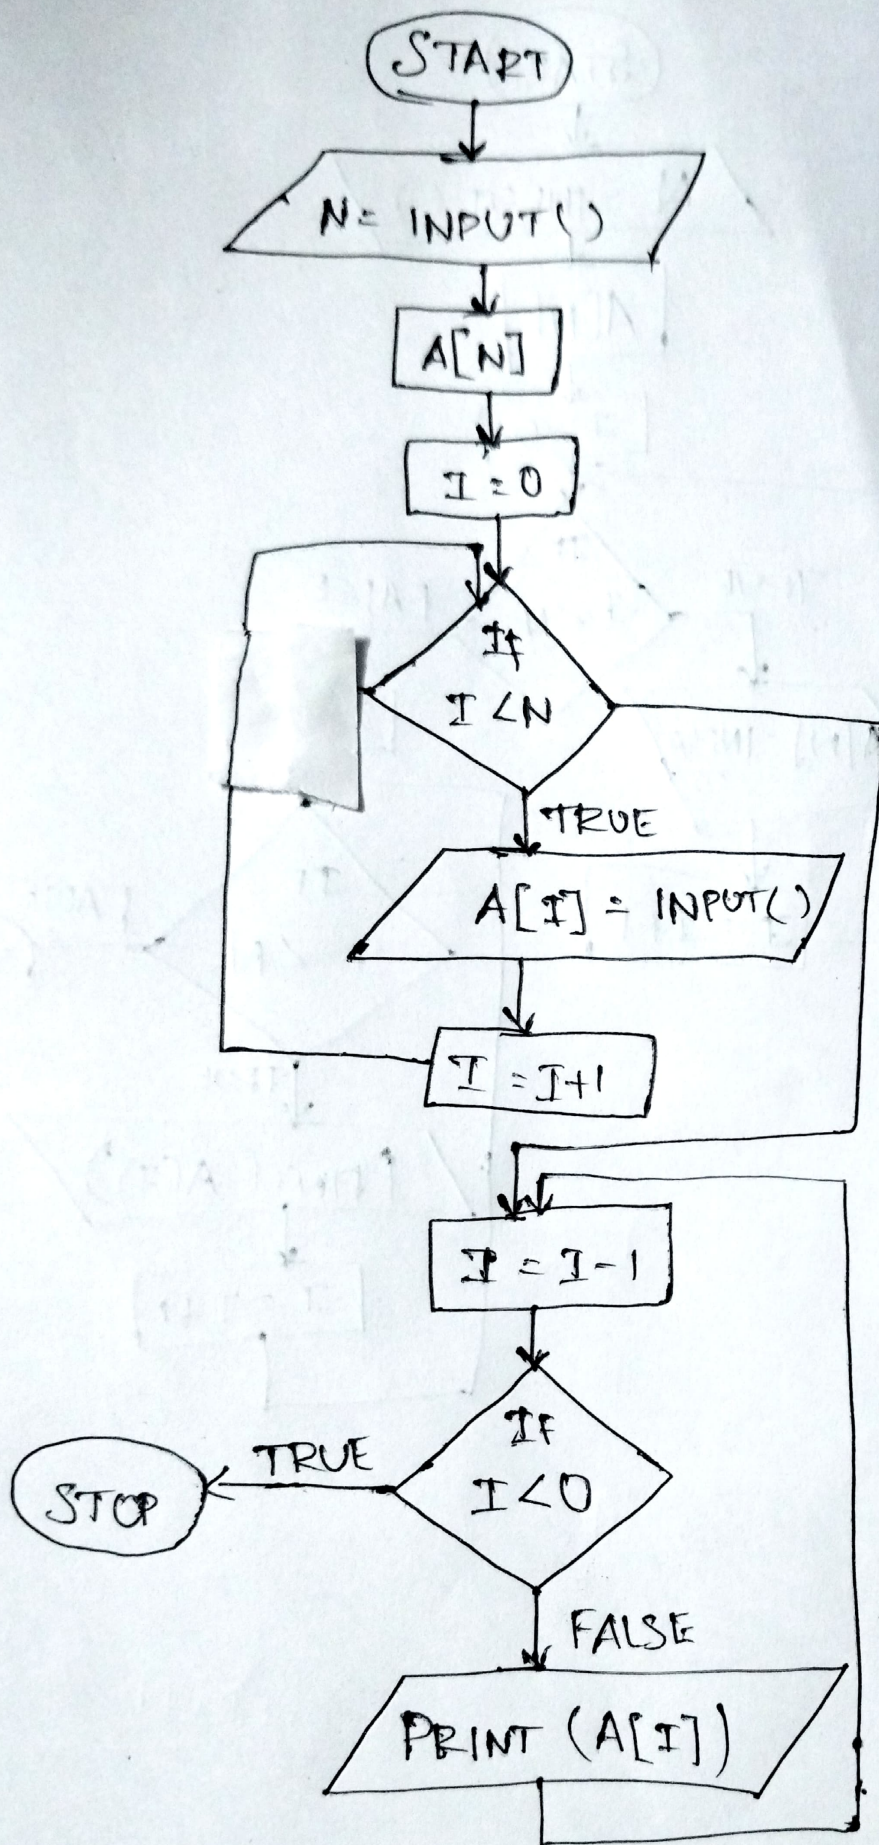 START
N= INPUT()
A[N]
I=0
If
I<N
TRUE
A[I] = INPUT()
I = I+1
I = I-1
If
I<0
TRUE
STOP
FALSE
PRINT (A[I])